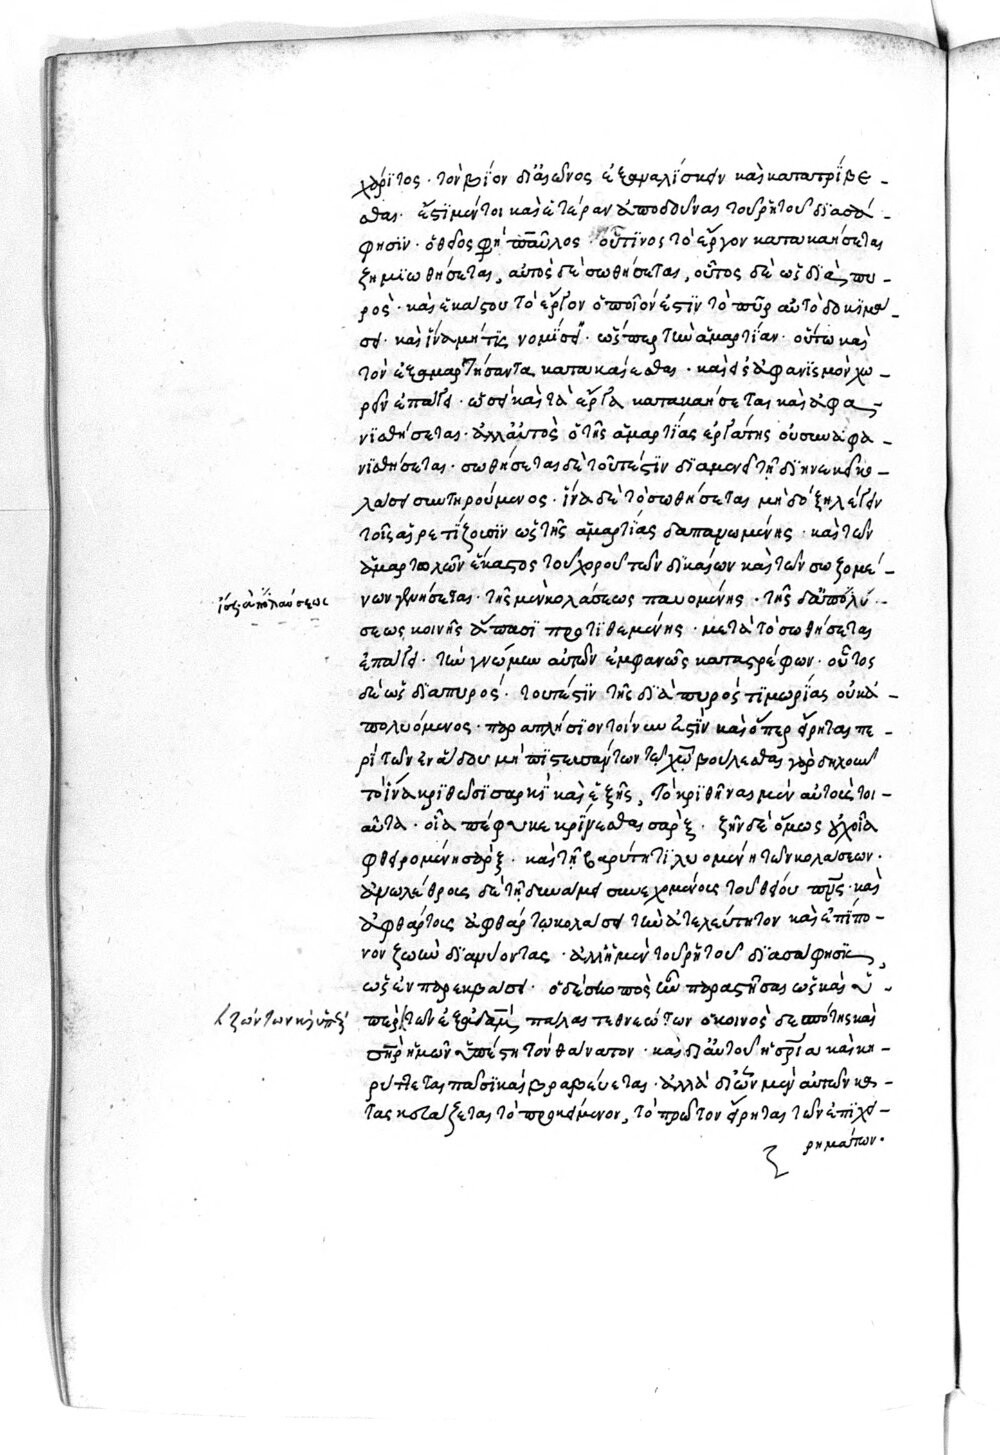 χάριτος · τὸν βίον δι' αἰῶνος ἐξομαλίσκειν καὶ κατατρίβε-
σθαι · ἔστι μέντοι καὶ ἑτέραν ἀποδοῦναι τοῦ ῥητοῦ διασά-
φησιν · ὁ θεῖος φησὶ παῦλος · οὕτινος τὸ ἔργον κατακαήσεται
ζημιωθήσεται, αὐτὸς δὲ σωθήσεται, οὕτως δὲ ὡς διὰ πυ-
ρός · καὶ ἑκάστου τὸ ἔργον ὁποῖον ἐστὶν τὸ πῦρ αὐτὸ δοκιμά-
σει · καὶ ἵνα μή τις νομίσῃ · ὥσπερ τὴν ἁμαρτίαν · οὕτω καὶ
τὸν ἐξαμαρτήσαντα κατακαίεσθαι · καὶ εἰς ἀφανισμὸν χω-
ρεῖν ἐπάγει · ὡσεὶ καὶ τὰ ἔργα κατακαήσεται καὶ ἀφα-
νισθήσεται · ἀλλ' αὐτὸς ὁ τῆς ἁμαρτίας ἐργάτης οὐ συναφα-
νισθήσεται · σωθήσεται δὲ τουτέστιν διαμενεῖ τῇ διηνεκεῖ κο-
λάσει συντηρούμενος · ἵνα δὲ τὸ σωθήσεται μὴ δόξῃ λέγειν
τοῖς αἱρετίζουσιν ὡς τῆς ἁμαρτίας δαπανωμένης · καὶ τῶν
ἁμαρτωλῶν ἕκαστος τοῦ χοροῦ τῶν δικαίων καὶ τῶν σωζομέ-
νων γενήσεται · τῆς μὲν κολάσεως παυομένης · τῆς δ' ἀπολύ-
σεως κοινῆς ἅπασι προτιθεμένης · μετὰ τὸ σωθήσεται
ἐπάγει · τὴν γνώμην αὐτῶν ἐμφανῶς καταστρέφων · οὕτως
δὲ ὡς διὰ πυρός · τουτέστιν τῆς διὰ πυρὸς τιμωρίας οὐκ ἀ-
πολυόμενος · παραπλήσιον τοίνυν ἐστὶν καὶ ὅπερ εἴρηται πε-
ρὶ τῶν ἐν ᾅδου μὴ πιστευσάντων τῷ χῷ βούλεσθαι γὰρ δηλοῦν
τὸ ἵνα κριθῶσι σαρκὶ καὶ ἑξῆς, τὸ κριθῆναι μὲν αὐτοὺς τοι-
αῦτα · οἷα πέφυκε κρίνεσθαι σάρξ · ζῆν δὲ ὅμως οὐχ οἷα
φθειρομένη σάρξ · καὶ τῇ βαρύτητι λυομένη τῶν κολάσεων ·
ἀνωλέθροις δὲ τῇ δυνάμει συνεχομένοις τοῦ θείου πνς · καὶ
ἀφθάρτοις ἀφθάρτῳ κολάσει τὴν ἀτελεύτητον καὶ ἐπίπο-
νον ζωὴν διαμένοντας · ἀλλ' ἡ μὲν τοῦ ῥητοῦ διασάφησις,
ὡς ἐν παρεκβάσει · ὁ δὲ σκοπὸς ἦν παραστῆσαι ὡς καὶ ὑ-
πὲρ τῶν ἐξ ἀδὰμ πάλαι τεθνεώτων ὁ κοινὸς δεσπότης καὶ
σηρ ἡμῶν ὑπέστη τὸν θάνατον · καὶ δι' αὐτοῦ ἡ σρία καὶ κη-
ρύττεται πᾶσι καὶ βραβεύεται · ἀλλὰ δι' ὧν μὲν αὐτῶν κά-
ται κατάξεται τὸ προκείμενον, τὸ πρῶτον εἴρηται τῶν ἐπιχει-
ρημάτων ·
ἴσως ἀπολαύσεως
ζώντων κ ὑπὲρ